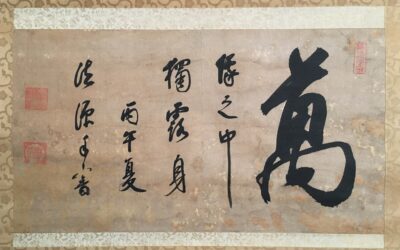 萬
像之中
獨露身
丙午夏
法源手書